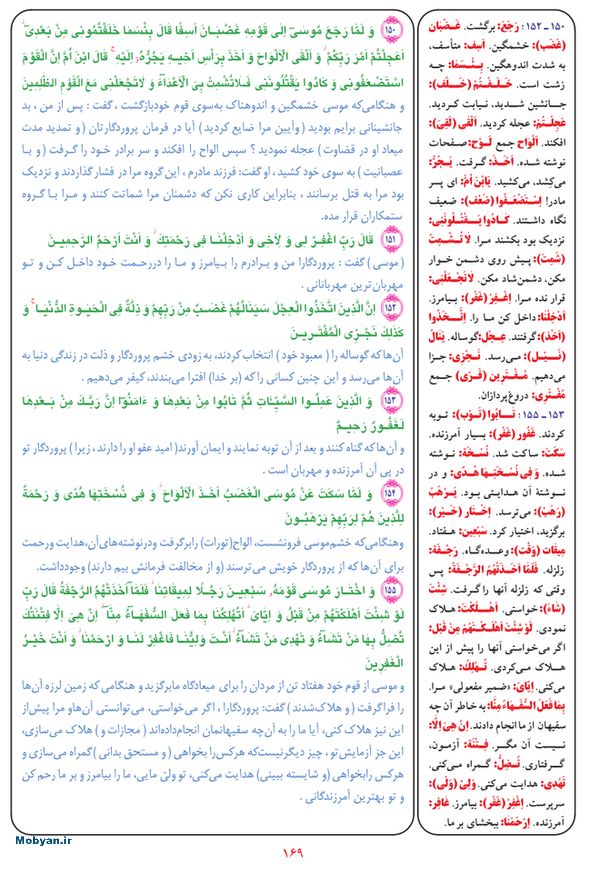 ۱۵۰ ـ ۱۵۲: رَجَعَ: برگشت. غَضْبان
(غَضَب): خشمگین. اَسِف: متأسف،
به شدت اندوهگین. بِئْسَمـا: چه
زشت است. خَلَـفْتُمْ (خَلَف):
جانشین شدید، نیابت کردید.
عَجِلْتُمْ: عجله کردید. اَلْقَی (لَقِیَ):
افکند. اَلْواح جمع لَوْح: صفحات
نوشته شده. اَخَذَ: گرفت. یَجُرُّ:
می‌کِشد، می‌کشید. یَابْنَ اُمَّ: ای پسر
مادر! اِسْتَضْعَفُوا (ضَعْف): ضعیف
نگاه داشتند. کادُوا یَـقْتُلُونَنی:
نزدیک بود بکشند مرا. لاتُشْمِتْ
(شَمِتَ): پیش روی دشمن خوار
مکن، دشمن‌شاد مکن. لاتَجْعَلْنی:
قرار نده مرا. اِغْفِرْ (غَفَر): بیامرز.
اَدْخِلْنا: داخل کن ما را. اِتَّخَذُوا
(اَخَذَ): گرفتند. عِجْل: گوساله. یَنالُ
(نَـیْـل): می‌رسد. نَجْزی: جزا
می‌دهیم. مُفْـتَرین (فَـرْی) جمع
مُفْتَری: دروغ‌پردازان.
۱۵۳ ـ ۱۵۵: تـابُوا (تَوْب): توبه
کردند. غَفُور (غَفْر): بسیار آمرزنده.
سَکَتَ: ساکت شد. نُسْخَة: نوشته
شده. وَ فی نُسْخَتِهـا هُدیً: و در
نوشتهٔ آن هدایتی بود. یَرْهَبُ
(رَهْب): می‌ترسد. اِخْـتارَ (خَـیْر):
برگزید، اختیار کرد. سَبْعین: هفتاد.
میقات (وَقْت): وعده‌گاه. رَجْفَة:
زلزله. فَلَمّا اَخَذَتْهُمُ الرَّجْفَةُ: پس
وقتی که زلزله آنها را گرفت. شِئْتَ
(شاءَ): خواستی. اَهْـلَکْتَ: هلاک
نمودی. لَوْ شِئْتَ اَهْلَکْتَهُمْ مِنْ قَبْلُ:
اگر می‌خواستی آنها را پیش از این
هـلاک مـی‌کردی. تُـهْلِکُ: هلاک
می‌کنی. اِیّایَ: «ضمیر مفعولی» مـرا.
بِما فَعَلَ السُّفَهاءُ مِنّا: به خاطر آن چه
سفیهان از ما انجام دادند. اِنْ هِیَ اِلّا:
نیست آن مگـر. فِـتْنَة: آزمون،
گرفتاری. تُـضِلُّ: گمراه می‌کنی.
تَهْدی: هدایت می‌کنی. وَلِیّ (وَلْی):
سرپرست. اِغْفِرْ (غَفْر): بیامرز. غافِر:
آمرزنده. اِرْحَمْنا: ببخشای بر ما.
۱۵۰ وَ لَمّا رَجَعَ مُوسـیٰٓ اِلٰی قَوْمِهٖ غَضْبـٰنَ اَسِفًا قَالَ بِئْسَمَا خَلَفْتُمُونی مِنْ بَعْدیٓۖ
اَعَجِلْتُمْ اَمْرَ رَبِّکُمْۖ وَ اَلْقَی الْاَلْوَاحَ وَ اَخَذَ بِرَأْسِ اَخیهِ یَجُرُّهُٓ اِلَیْهِۚ قَالَ ابْنَ اُمَّ اِنَّ الْقَوْمَ
اسْتَضْعَفُونی وَ کَادُوا یَقْتُلُونَنی فَلاتُشْمِتْ بِیَ الْاَعْدَآءَ وَ لاتَجْعَلْنی مَعَ الْقَوْمِ الظّٰلِمینَ
و هنگامی‌که موسی خشمگین و اندوهناک به‌سوی قوم خودبازگشت ، گفت : پس از من ، بد
جانشینانی برایم بودید ( وآیین مرا ضایع کردید ) آیا در فرمان پروردگارتان ( و تمدید مدت
میعاد او در قضاوت ) عجله نمودید ؟ سپس الواح را افکند و سر برادر خـود را گرفت ( و بـا
عصبانیت ) به سوی خود کشید ، او گفت: فرزند مادرم ، این گروه مرا در فشار گذاردند و نزدیک
بود مرا به قتل برسانند ، بنابراین کاری نکن که دشمنان مرا شماتت کنند و مـرا بـا گـروه
ستمکاران قرار مده.
۱۵۱ قَالَ رَبِّ اغْفِرْ لی وَ لِاَخی وَ اَدْخِلْنَا فی رَحْمَتِکَۖ وَ اَنْتَ اَرْحَمُ الرّٰحِمینَ
( موسی ) گفت : پروردگارا من و برادرم را بیامرز و ما را دررحمت خود داخل کـن و تـو
مهربان‌ترین مهربانانی .
۱۵۲ اِنَّ الَّذینَ اتَّخَذُوا الْعِجْلَ سَیَنَالُهُمْ غَضَبٌ مِنْ رَبِّهِمْ وَ ذِلَّةٌ فِی الْحَیٰوةِ الدُّنْیَاۚ وَ
کَذٰلِکَ نَجْزِی الْمُفْتَرینَ
آن‌ها که گوساله را ( معبود خود ) انتخاب کردند، به زودی خشم پروردگار و ذلت در زندگی دنیا به
آن‌ها می‌رسد و این چنین کسانی را که (بر خدا) افترا می‌بندند، کیفر می‌دهیم .
۱۵۳ وَ الَّذینَ عَمِلُوا السَّیِّـَٔاتِ ثُمَّ تَابُوا مِنْ بَعْدِهَا وَ ءَامَنُوٓا اِنَّ رَبَّکَ مِنْ بَـعْدِهَا
لَغَفُورٌ رَحیمٌ
و آن‌ها که گناه کنند و بعد از آن توبه نمایند و ایمان آورند( امید عفو او را دارند ، زیرا ) پروردگار تو
در پی آن آمرزنده و مهربان است .
۱۵۴ وَ لَمّا سَکَتَ عَنْ مُوسَی الْغَضَبُ اَخَذَ الْاَلْوَاحَۖ وَ فی نُسْخَتِهَا هُدًی وَ رَحْمَةٌ
لِلَّذینَ هُمْ لِرَبِّهِمْ یَرْهَبُونَ
وهنگامی‌که خشم‌موسی فرونشست، الواح(تورات) رابرگرفت ودرنوشته‌های‌آن،هدایت ورحمت
برای آن‌ها که از پروردگار خویش می‌ترسند (و از مخالفت فرمانش بیم دارند) وجودداشت.
۱۵۵ وَ اخْتَارَ مُوسیٰ قَوْمَهُ سَبْعینَ رَجُلًا لِمیقَاتِنَاۖ فَلَمّآ اَخَذَتْهُمُ الرَّجْفَةُ قَالَ رَبِّ
لَوْ شِئْتَ اَهْلَکْتَهُمْ مِنْ قَبْلُ وَ اِیّٰیَۖ اَتُهْلِکُنَا بِمَا فَعَلَ السُّفَهَآءُ مِنّآۖ اِنْ هِیَ اِلّا فِتْنَتُکَ
تُضِلُّ بِهَا مَنْ تَشَآءُ وَ تَهْدی مَنْ تَشَآءُۖ اَنْتَ وَلِیُّنَا فَاغْفِرْ لَنَـا وَ ارْحَمْنَاۖ وَ اَنْتَ خَیْرُ
الْغٰفِرینَ
و موسی از قوم خود هفتاد تن از مردان را برای میعادگاه مابرگزید و هنگامی که زمین لرزه آن‌ها
را فراگرفت ( و هلاک‌شدند ) گفت: پروردگارا ، اگر می‌خواستی، می‌توانستی آن‌هاو مرا پیش‌از
این نیز هلاک کنی، آیا ما را به آن‌چه سفیهانمان انجام‌داده‌اند ( مجازات و ) هلاک می‌سازی،
این جز آزمایش‌تو ، چیز دیگرنیست‌که هرکس‌را بخواهی ( و مستحق بدانی ) گمراه می‌سازی و
هرکس رابخواهی (و شایسته ببینی) هدایت می‌کنی، تو ولیّ مایی، ما را بیامرز و بر ما رحم کن
و تو بهترین آمرزندگانی .
۱۶۹
Mobyan.ir